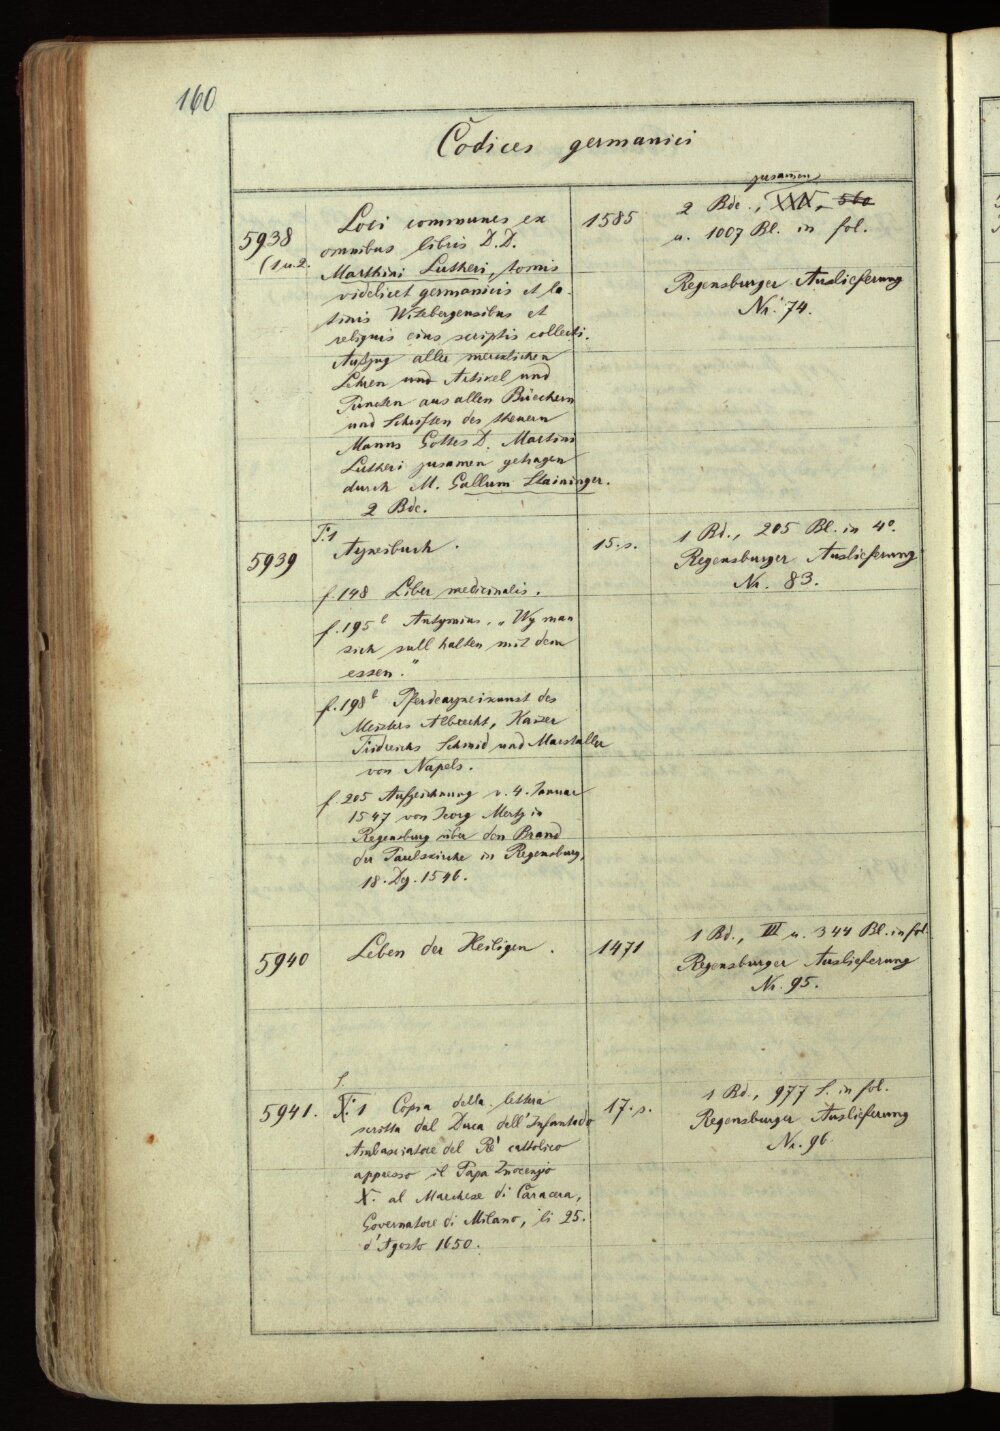 160
Codices germanici
5938
(1 u. 2.
Loci communes ex
omnibus libris D. D.
Marthini Lutheri, tomis
videlicet germanicis et la-
tinis Witebergensibus et
reliquis eius scriptis collecti.
Auszug aller mercklichen
Lehren und Artikel und
Puncten aus allen Büechern
und Schriften des theuern
Manns Gottes D. Martini
Lutheri zusamen getragen
durch M. Gallum Staininger.
2 Bde.
1585
zusamen
2 Bde., XXIV, 560
u. 1007 Bl. in fol.
Regensburger Auslieferung
Nr. 74.
5939
F. 1
Arzneibuch.
f. 148 Liber medicinalis.
f. 195b "Wy man
sich sull halten mit dem
essen."
f. 198b Pferdearzneikunst des
Meisters Albrecht, Kaiser
Fridreichs Schmid und Marstaller
von Napels.
f. 205 Aufzeichnung v. 4. Januar
1547 von Georg Mertz in
Regensburg über den Brand
der Paulskirche in Regensburg,
18. Dez. 1546.
15. s.
1 Bd., 205 Bl. in 4°.
Regensburger Auslieferung
Nr. 83.
5940
Leben der Heiligen.
1471
1 Bd., III u. 344 Bl. in fol.
Regensburger Auslieferung
Nr. 95.
5941.
S.
F. 1 Copia della lettera
scritta dal Duca dell'Infantado
Ambasciatore del Rè cattolico
appresso il Papa Inocenzio
X. al Marchese di Caracera,
Governatore di Milano, li 25.
d'Agosto 1650.
17. s.
1 Bd., 977 S. in fol.
Regensburger Auslieferung
Nr. 96.